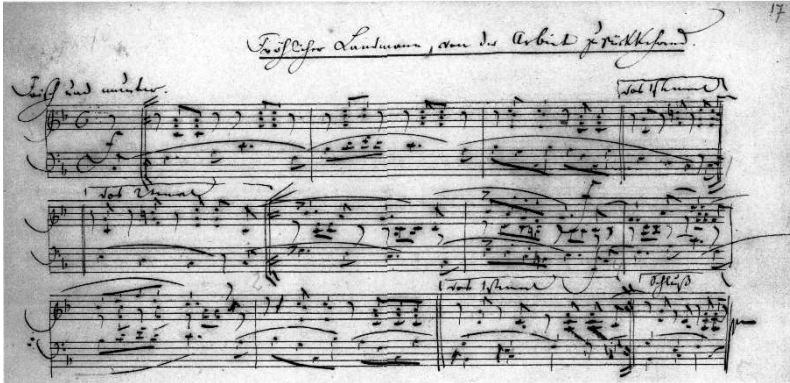 17
Fröhlicher Landmann, von der Arbeit zurückkehrend.
Frisch und munter.
das 1stemal
f
das 2temal
das 1stemal
Schluß